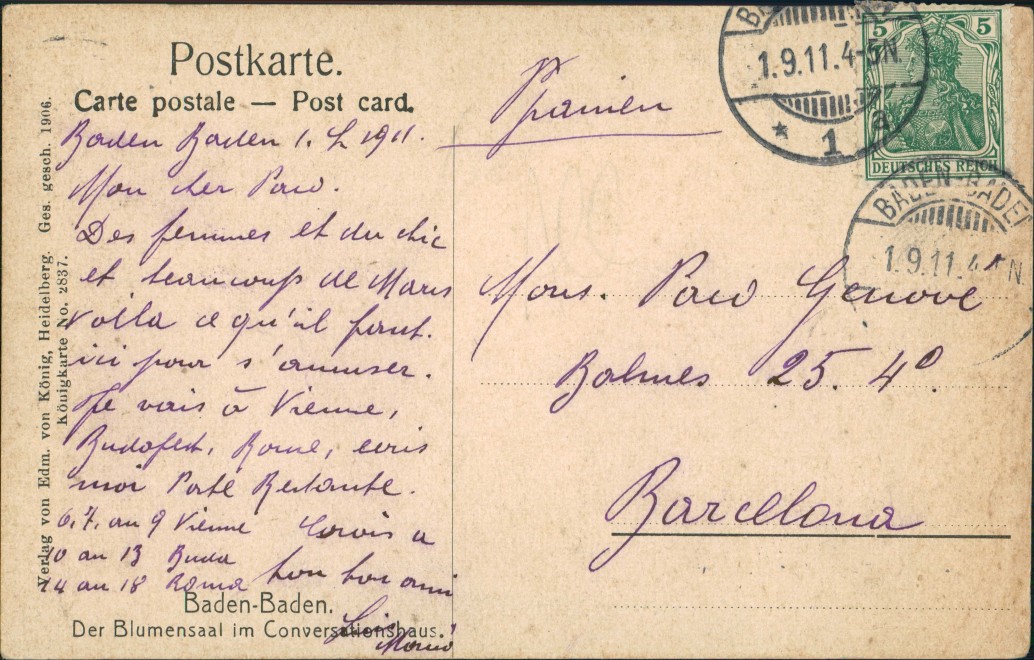 Postkarte.
Carte postale — Post card.
Baden Baden 1. 1911.
Mon cher
Des femmes et du chic
et beaucoup de
Voila ce qu'il faut
ici pour s'amuser.
Je vais à Vienne,
Budapest, Rome, ecris
moi Poste Restante.
6, 7, au 9 Vienne
10 au 13 Buda
14 au 18 Roma
a
ton bon ami
Baden-Baden.
Der Blumensaal im Conversationshaus.
Verlag von Edm. von König, Heidelberg. Ges. gesch. 1906.
Königkarte No. 2837.
Spanien
Mons. Genové
Balmes 25. 4º.
Barcelona
5 5
DEUTSCHES REICH
1.9.11.4-5N.
* 1 a
BADEN-BADEN
1.9.11.4 N.